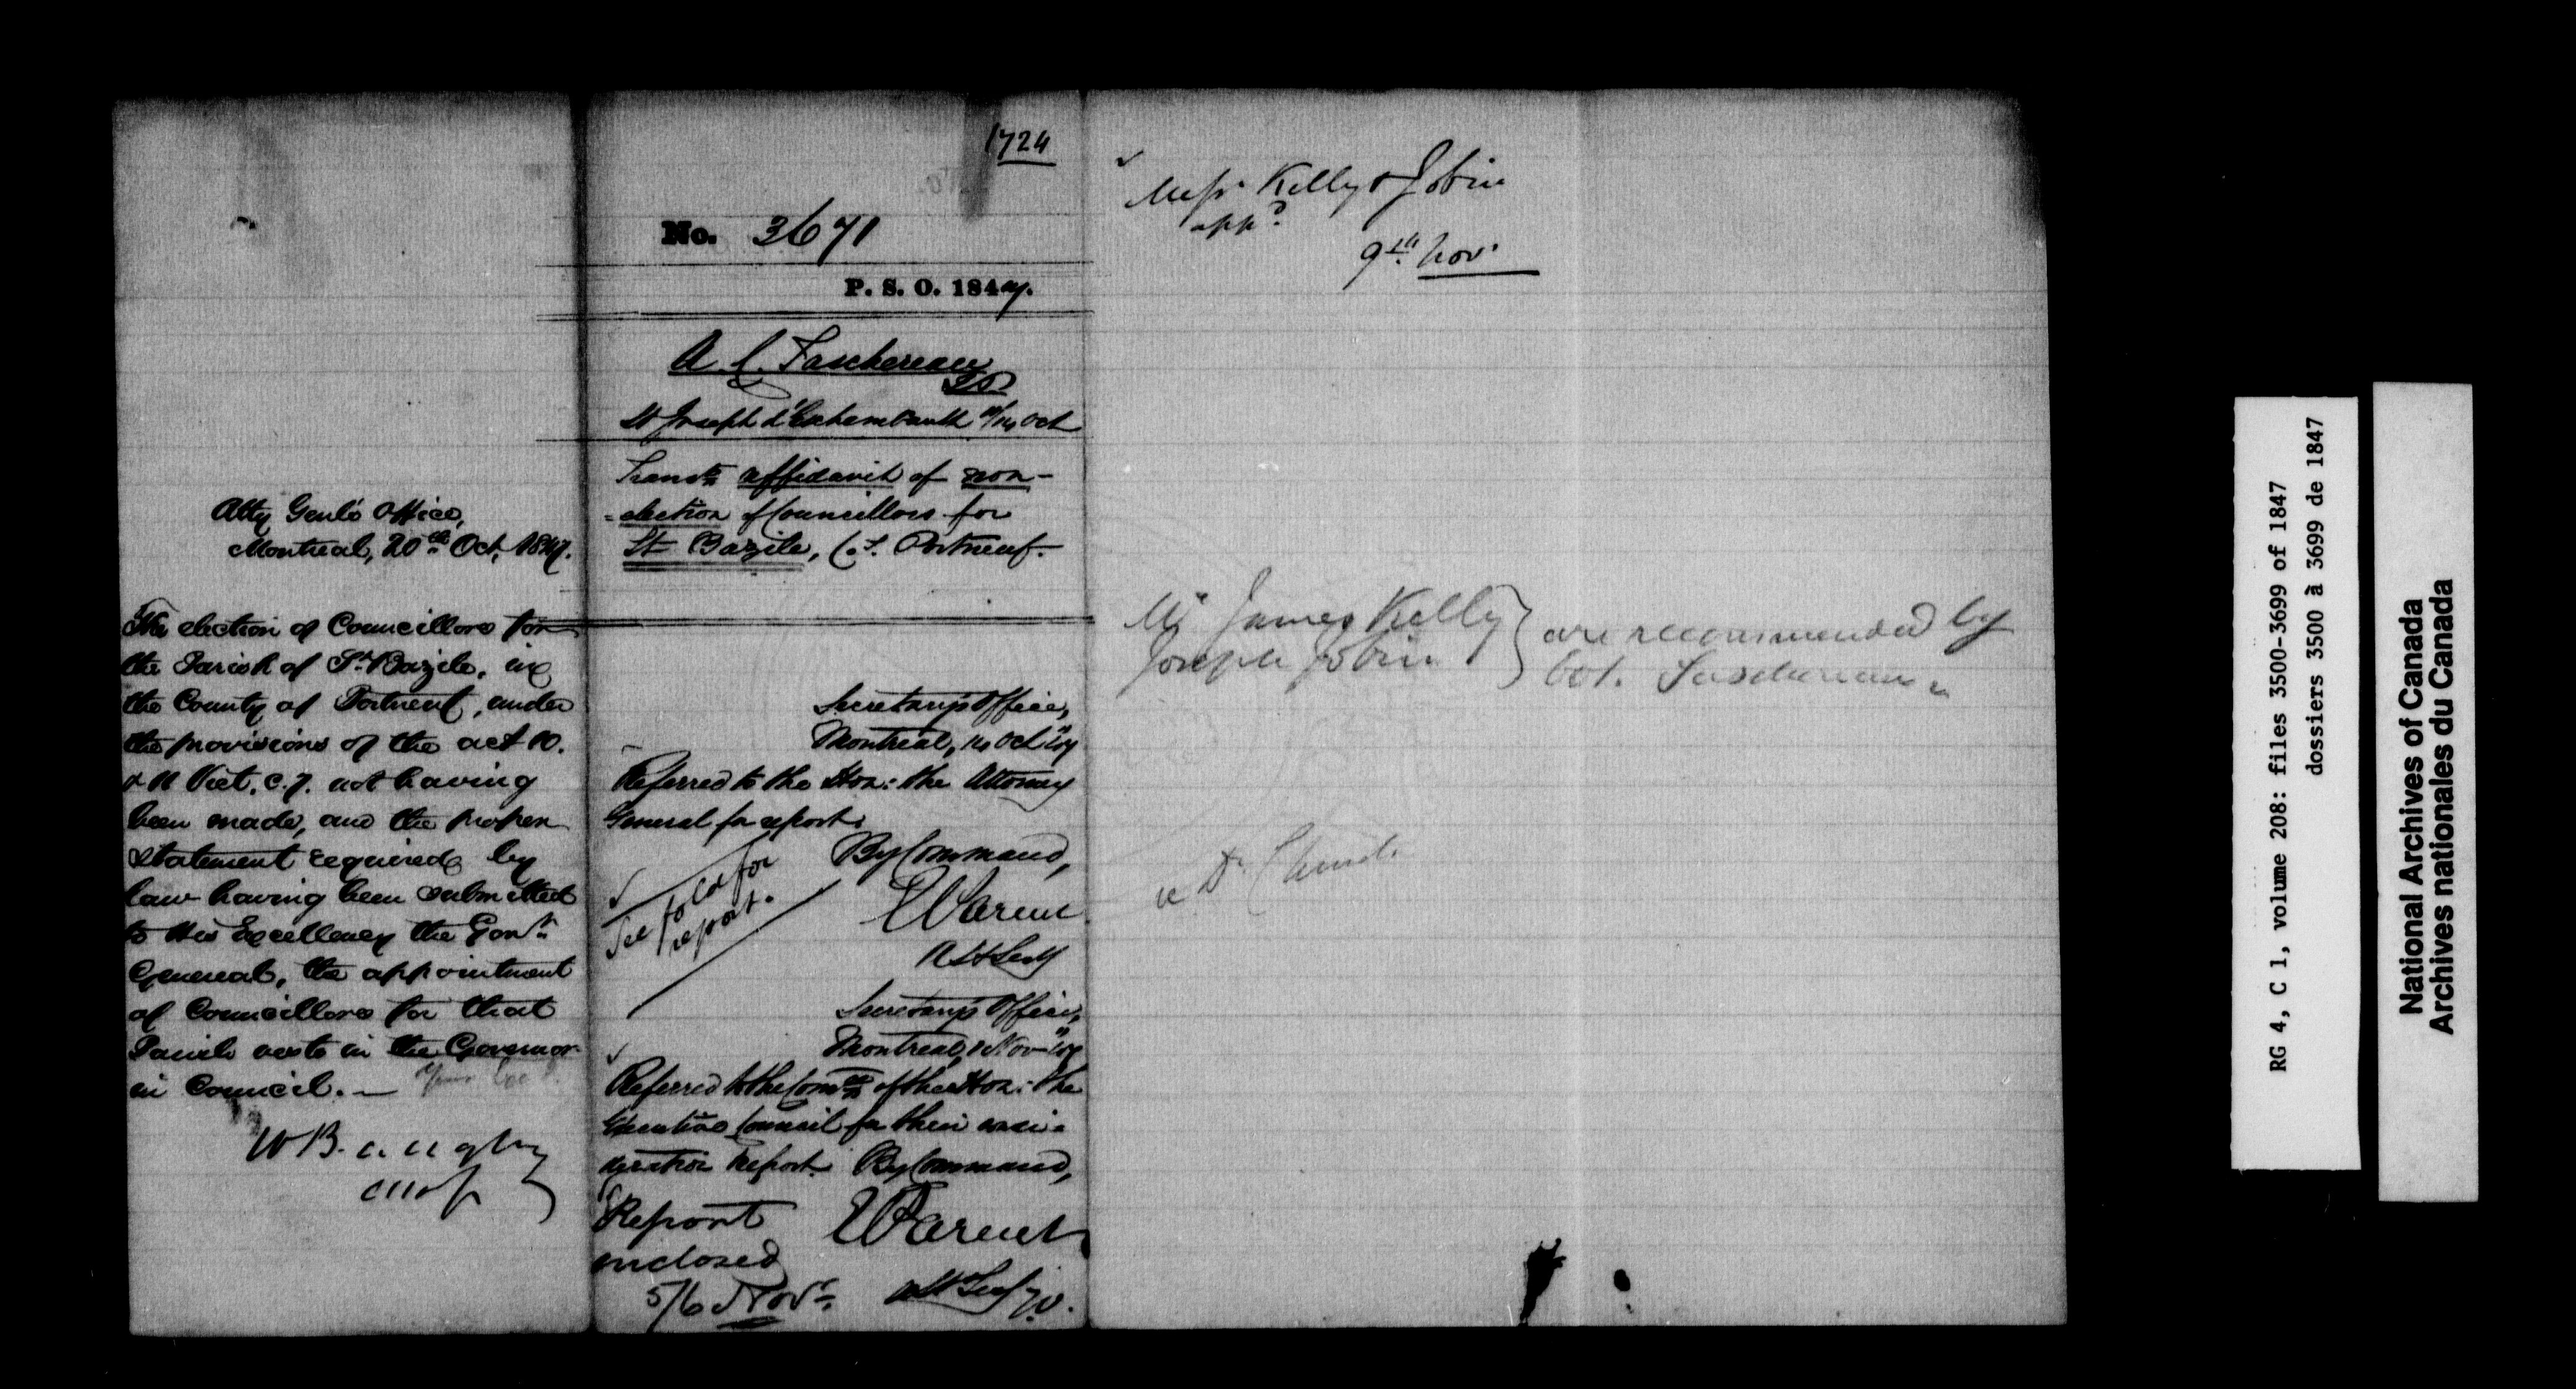 Atty Genl's Office,
Montreal, 20th Oct. 1847.
The election of Councillors for
the Parish of St Bazile, in
the County of Portneuf, under
the provisions of the act 10.
& 11 Vict. c. 7. not having
been made, and the proper
statement required by
law having been submitted
to His Excellency the Govr
General, the appointment
of Councillors for that
Parish vests in the Governor
in Council. —
1724
No. 3671
P. S. O. 1847.
A C. Taschereau
St Joseph d'Eschambault /14 Oct
Transts affidavit of non-
-election of Councillors for
St Bazile, Co. Portneuf.
Secretary's Office,
Montreal, 14 Oct "47
Referred to the Hon: the Attorney
General for report.
By Command,
EParent
ASt Secy
See folder for
report.
Secretary's Office,
Montreal, Nov "47
Referred to the Comee of the Hon: the
Executive Council for their consi-
deration & report. By Command,
EParent
ASt Secy
Report
enclosed
5/6 Novr
Messrs Kelly & Jobin
appd
9th Novr
Mr James Kelly
Joseph Jobin } are recommended by
Col. Taschereau
RG 4, C 1, volume 208: files 3500-3699 of 1847
dossiers 3500 à 3699 de 1847
National Archives of Canada
Archives nationales du Canada